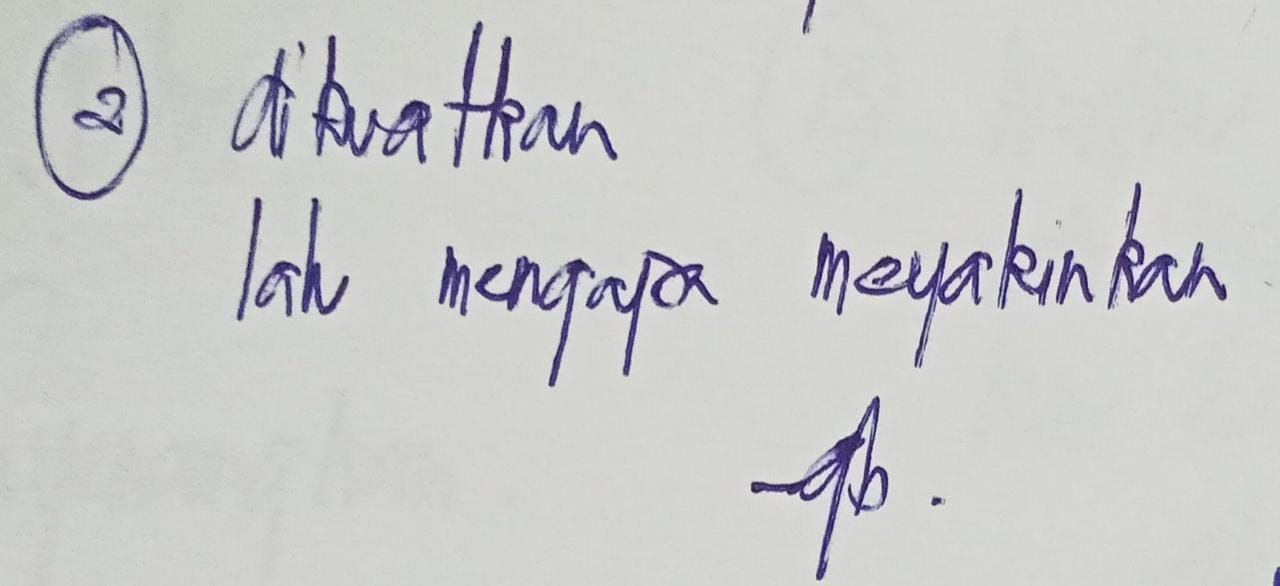 ② dikuatkan
lah mengapa meyakinkan
gb.